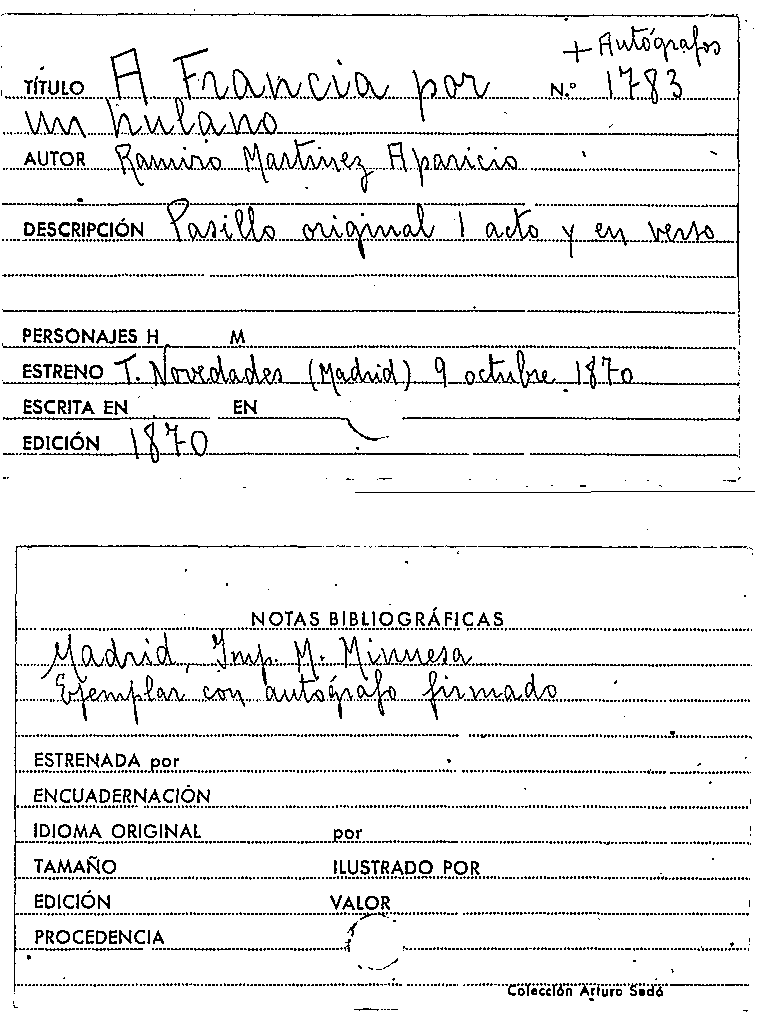 + Autógrafos
TÍTULO A Francia por N.º 1783
un hulano
AUTOR Ramiro Martínez Aparicio
DESCRIPCIÓN Pasillo original 1 acto y en verso
PERSONAJES H M
ESTRENO T. Novedades (Madrid) 9 octubre 1870
ESCRITA EN EN
EDICIÓN 1870
NOTAS BIBLIOGRÁFICAS
Madrid, Imp. M. Minuesa
Ejemplar con autógrafo firmado
ESTRENADA por
ENCUADERNACIÓN
IDIOMA ORIGINAL por
TAMAÑO ILUSTRADO POR
EDICIÓN VALOR
PROCEDENCIA
Colección Arturo Sedó